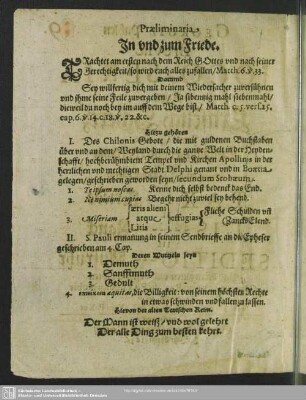 Præliminaria.
In vnd zum Friede.
TRachtet am ersten nach dem Reich GOttes vnd nach seiner
Gerechtigkeit/ so wird euch alles zufallen/ Matth. 6. v. 33.
Darumb
Sey willfertig dich mit deinem Wiedersacher zuversühnen
vnd ihme seine Feile zuvergeben/ Ja sibenzig mahl siebenmahl/
dieweil du noch bey im auff dem Wege bist/ Matth. c. 5. vers. 25.
cap. 6. v. 14. c. 18. v. 22. &c.
Hierzu gehören
I. Des Chilonis Gebote/ die mit guldenen Buchstaben
über vnd an dem/ Weyland durch die gantze Welt in der Heyden-
schafft/ hochberühmbtem Tempel vnd Kirchen Apollinis in der
herrlichen vnd mechtigen Stadt Delphi genant vnd in Bœotia
gelegen/ geschrieben geworden seyn/ secundum
1. Te ipsum noscas. Kenne dich selbst bedenck das End.
2. Ne nimium cupias Begehe nicht zuviel sey behend.
3. Miseriam
æris alieni
atque
Litis
effugias
Fliehe Schulden vñ
Zanck Elend.
II. S. Pauli ermanung in seinem Sendbrieffe an die Epheser
geschrieben am 4. Cap.
Deren Wurtzeln seyn
1. Demuth
2. Sanfftmuth
3. Gedult
4. æquitas, die Billigkeit: von seinem höchsten Rechte
in etwas schwinden vnd fallen zu lassen.
Hiervon der alten Teutschen Reim.
Der Mann ist weiß/ vnd wol gelehrt
Der alle Ding zum besten kehrt.